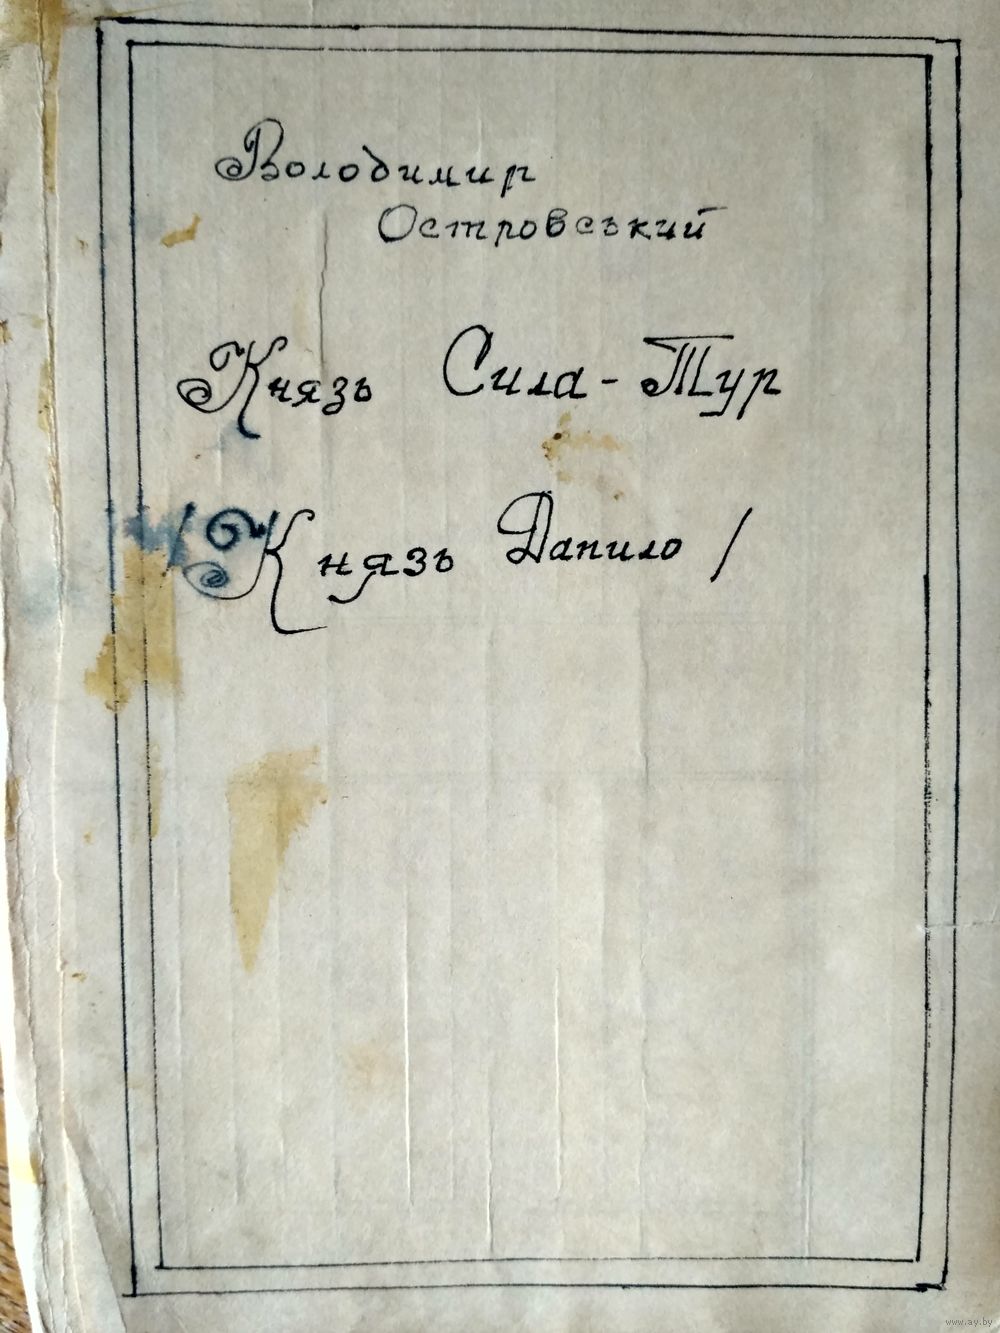 Володимир
Островський
Князь Сила-Тур
/Князь Данило/
www.ay.by